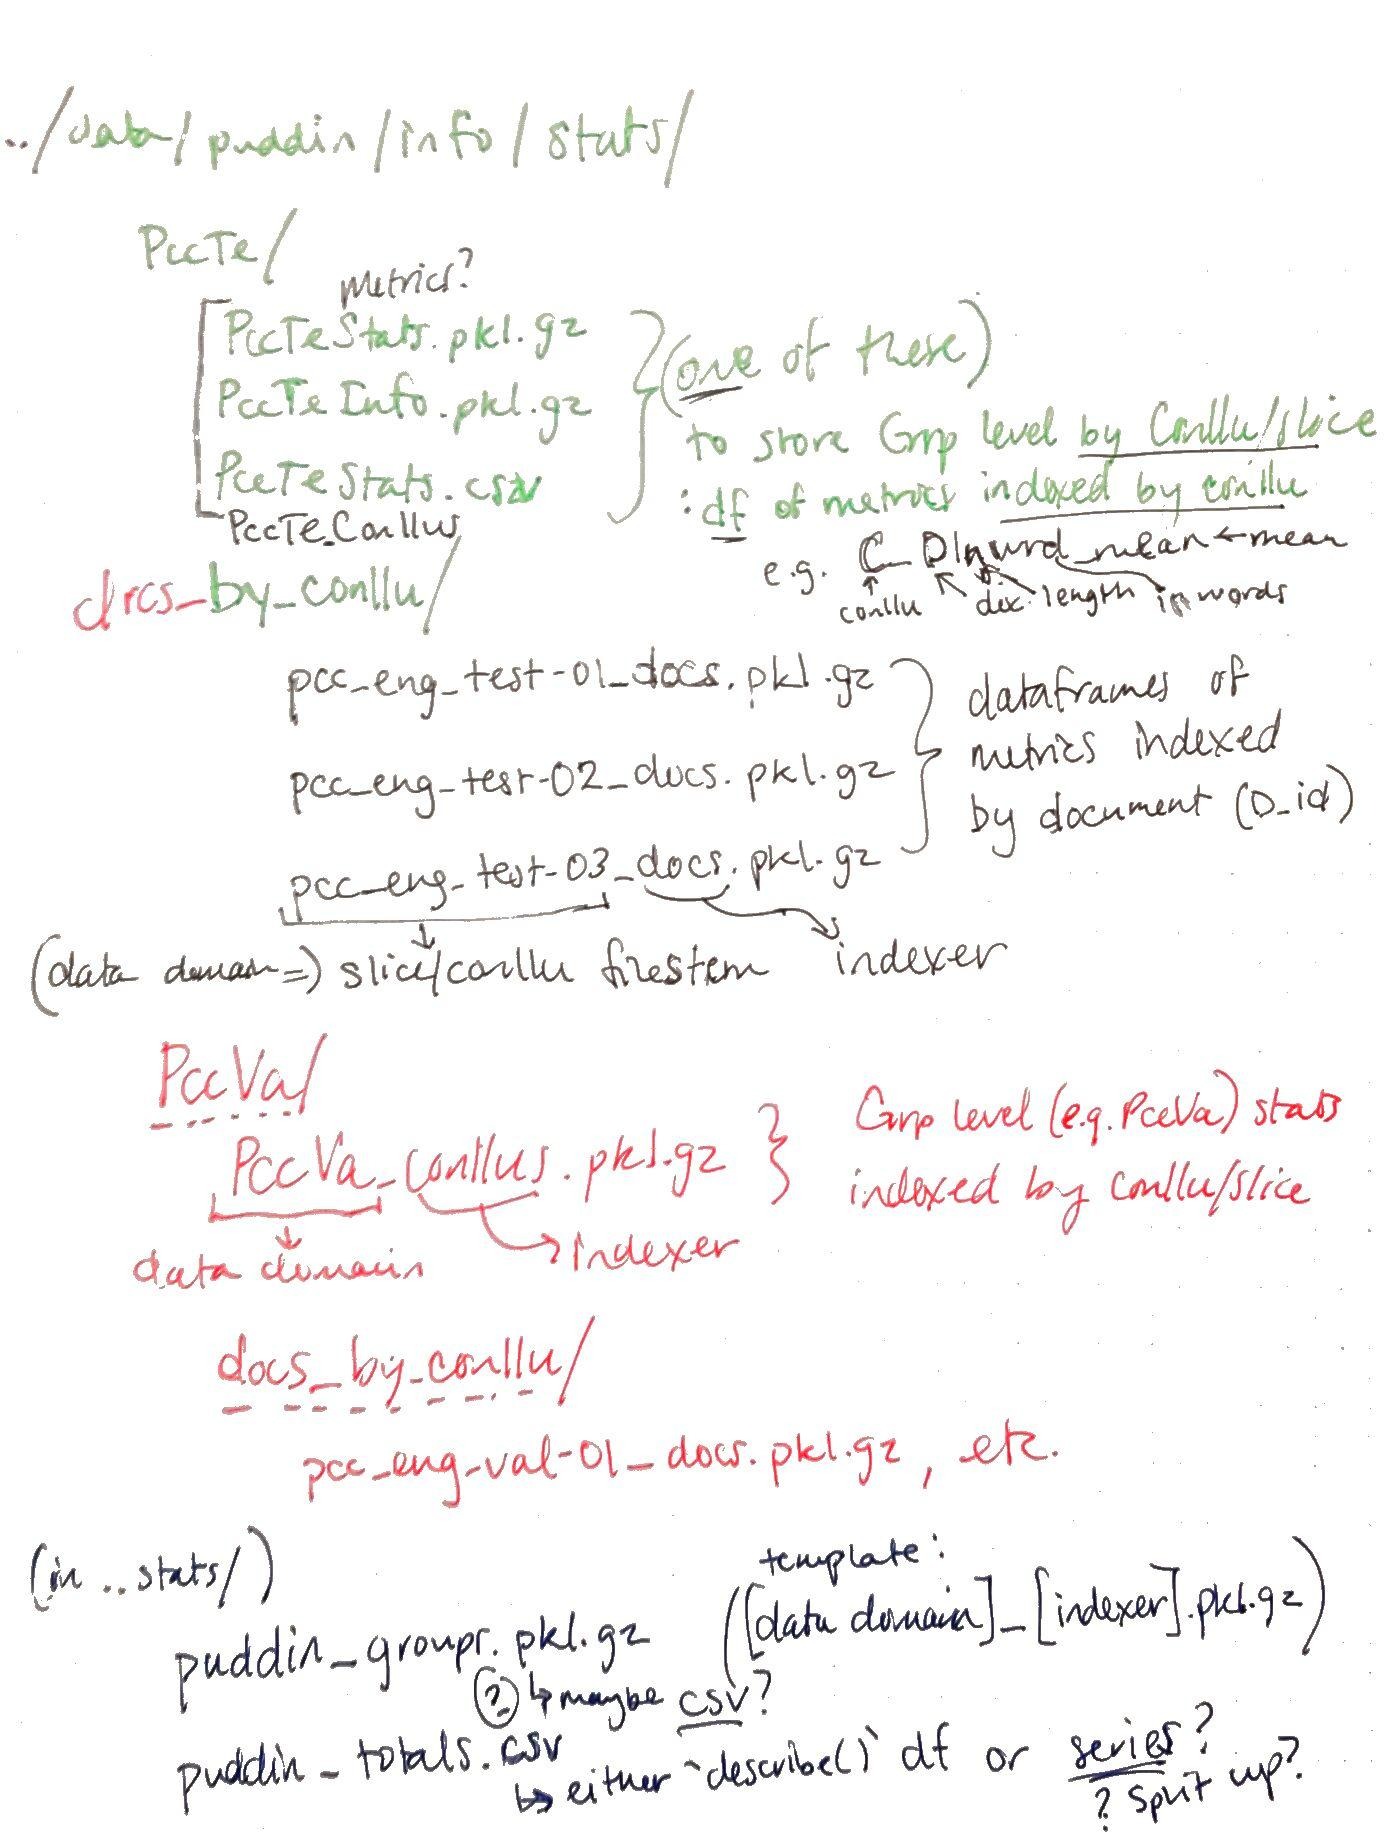 ../data/puddin/info/stats/
PccTe/
Metrics?
PccTeStats.pkl.gz
PccTeInfo.pkl.gz
PccTeStats.csv
PccTe_Conllus
(one of these)
to store Grp level by Conllu/slice
: df of metrics indexed by conllu
e.g. C_Dlnwrd_mean ← mean
conllu doc. length in words
docs_by_conllu/
pcc_eng_test-01_docs.pkl.gz
pcc_eng_test-02_docs.pkl.gz
pcc_eng_test-03_docs.pkl.gz
dataframes of
metrics indexed
by document (D_id)
(data domain=) slice/conllu filestem indexer
PccVa/
PccVa_conllus.pkl.gz
data domain
indexer
Grp level (e.g. PccVa) stats
indexed by conllu/slice
docs_by_conllu/
pcc_eng_val-01_docs.pkl.gz, etc.
(in ..stats/)
template:
([data domain]_[indexer].pkl.gz)
puddin_groups.pkl.gz
(?) ↳ maybe csv?
puddin_totals.csv
↳ either `describe()` df or series?
? split up?